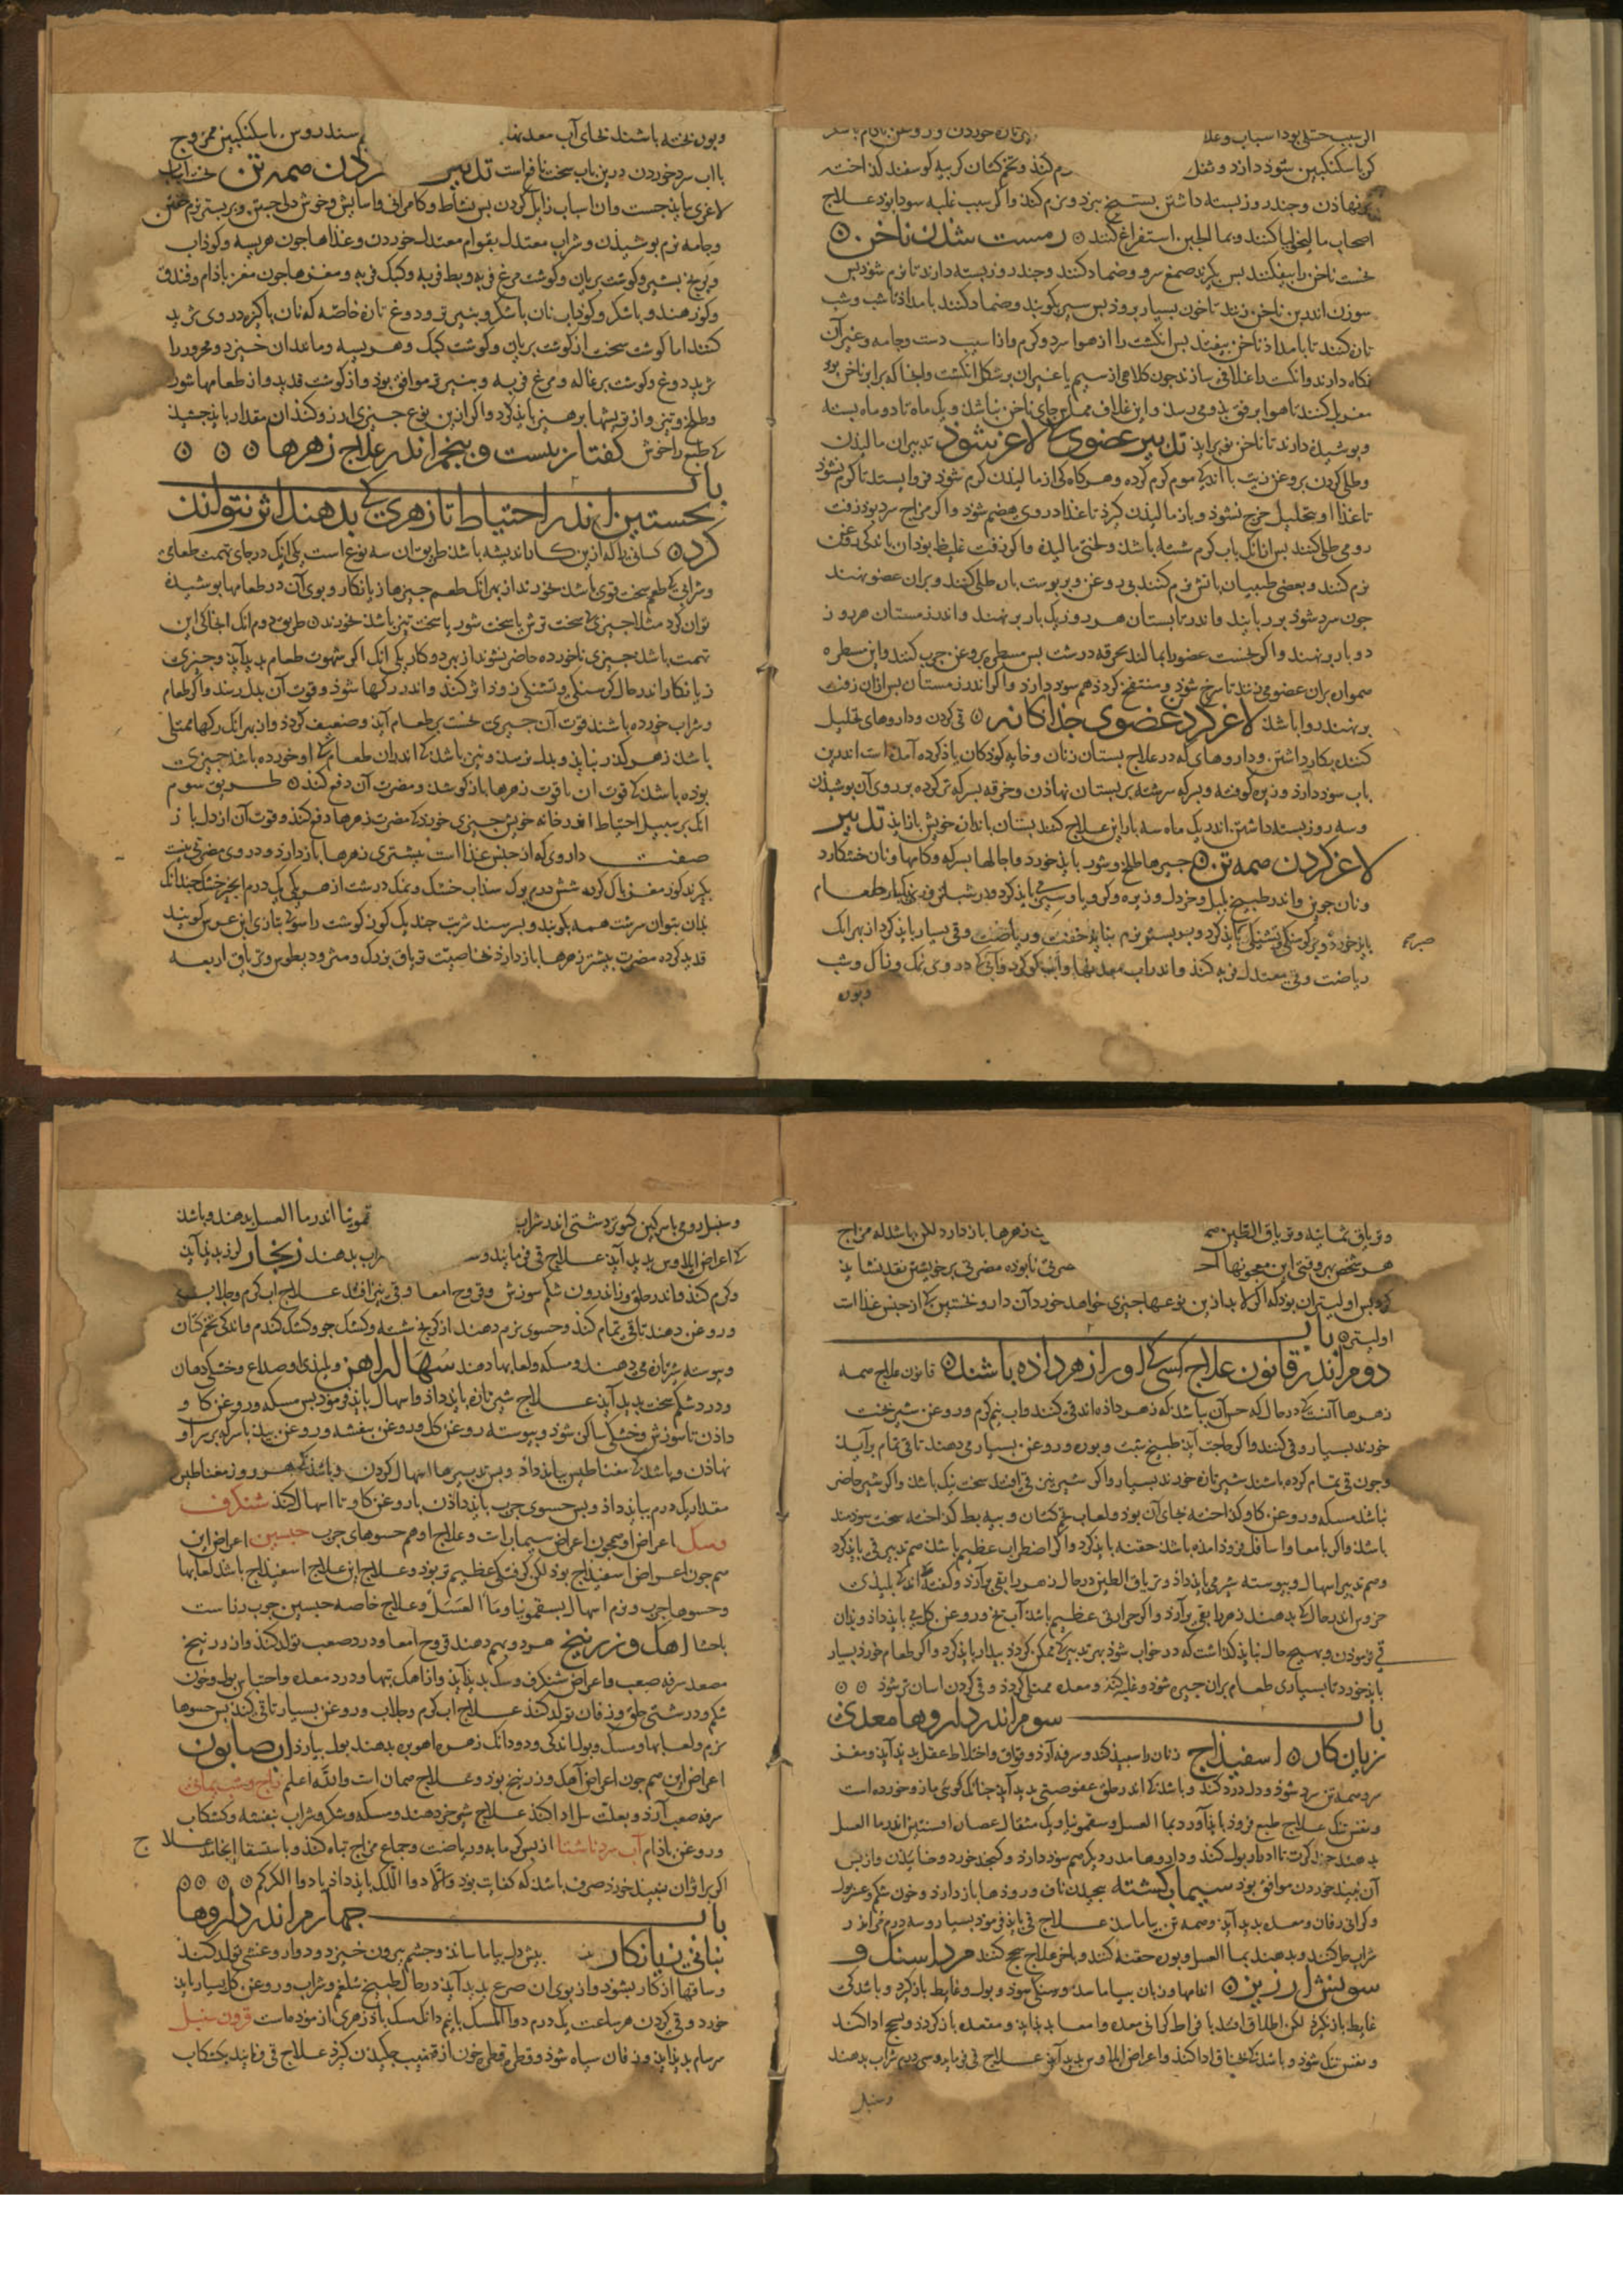 اگر سبب خشکی بود اسباب وعلا
کی باسکنکبین سوذ دارد وثفل
نهاذن وچند روز بسته داشتن بستیخ ببرد ونرم کند واکر سبب غلبه سودا بوذ علاج
اصحاب مالیخولیا کنند وبما الجبن استفراغ کنند رست شدن ناخن
نخست ناخن را بیفکنند بس بکیرند صمغ سرو وضماد کنند وچند روز بسته دارند تا نرم شوذ بس
سوزن اندربن ناخن زنند تا خون بسیار بروذ بس سیر بکوبند وضماد کنند بامداذ تا شب وشب
تازه کنند تا بامداذ ناخن بیفتد بس انکشت را از هوا سرد وکرم واز اسیب دست وجامه وغیر آن
نکاه دارند وانکشت را غلافی سازند چون کلاهی از سیم یا غیر آن بر شکل انکشت
وبوشیذه دارند تا ناخن نو براید تدبیر عضوی کی لاغر شوذ تدبیر ان مالیذن
وطلی کردن بروغن زیت با اندکی موم کرم کرده وهرکاه کی از مالیذن کرم شوذ فرو ایستند تا کرم نشوذ
تا غذا او بتحلیل خرج نشوذ وباز مالیذن کیرذ تا غذا در وی هضم شوذ واکر مزاج سرد بوذ زفت
رومی طلی کنند بس از انک باب کرم شسته باشند ولختی مالیذه واکر زفت غلیظ بوذ ان را باندکی روغن
نرم کنند وبعضی طبیبان باتش نرم کنند بی روغن وبر پوست باره طلی کنند وبران عضو نهند
چون سرد شوذ بر ربایند واندر تابستان هر روز یک بار بر نهند واندر زمستان هر روز
دو بار بر نهند واکر نخست عضو را بمالند بخرقه درشت بس مسطره بروغن چرب کنند واین مسطره
هموار بران عضو می زنند تا سرخ شوذ ومنتفخ کردذ هم سود دارد واکر اندر زمستان بس ازان زفت
بر نهند روا باشذ لاغر کردن عضوی جذاکانه قی کردن وداروهای تحلیل
کننده بکار داشتن وداروهای که در علاج بستان زنان وخایه کوذکان یاذ کرده آمذه است اندرین
باب سود دارد وزیره کوفته وبسرکه سرشته بر بستان نهاذن وخرقه بسرکه تر کرده بر روی آن بوشیذن
وسه روز بسته داشتن اندر یک ماه سه بار این علاج کنند بستان باندازه خویش باز ایذ تدبیر
لاغر کردن همه تن چیزها طلخ وشور بایذ خورد واچارها بسرکه وکامها ونان خشکار
ونان جوین واندر طبیخ بلبل وخردل وزیره وکرویا وسیر
بایذ خورد وبر کرسنکی وتشنکی بایذ کرد وبر بستر نرم نبایذ خفت وریاضت وقی بسیار بایذ کرد از بهر انک
ریاضت وقی معتدل فربه کند واندر اب معدنها واب کوکرد وآبی که در وی نمک
وبون
وبون نخته باشند بجای آب معدنها سندروس باسکنکبین ممزوج
بااب سرد خوردن درین باب سخت نافع است تدبیر ردن همه تن نخست اسباب
لاغری بایذ جست وان اسباب زایل کردن بس نشاط وکامرانی واسایش وخوش دلی جستن وبر بستر نرم خفتن
وجامه نرم بوشیذن وشراب معتدل بقوام معتدل خوردن وغذاها چون هریسه وکوذاب
وبرنج بشیر وکوشت بریان وکوشت مرغ فربه وبط فربه وکبک فربه ومغزها چون مغز باذام وفندق
وکوز هندو باشکر وکوذاب نان باشکر وبنیر تر ودوغ تازه خاصه که نان پاکیزه در وی ثرید
کنند اما کوشت سخت از کوشت بریان وکوشت کبک وهریسه وماننذ ان خیزد ومحرور را
ثرید دوغ وکوشت بزغاله ومرغ فربه وبنیر تر موافق بوذ واز کوشت قدید واز طعامها شور
وطلخ وتیز واز تریها برهیز بایذ کرد واکر ازین نوع چیزی ارزو کند ان مقدار بایذ چشیذ
کی طبع را خوش کفتار بیست وبنجم اندر علاج زهرها
باب
نخستین اندر احتیاط تا زهری کی بدهند اثر نتواند
کرد کسانی را که ازین کار اندیشه باشذ طریق ان سه نوع است یکی انک در جای تهمت طعامی
وشرابی کی طعم سخت قوی باشذ نخورند از بهر انک طعم چیزها زیانکار وبوی آن در طعامها بوشیذه
توان کرد مثلا چیزی کی سخت ترش یا سخت شور یا سخت تیز باشذ نخورند طریق دوم انک انجا کی این
تهمت باشذ چیزی ناخورده حاضر نشوند از بهر دو کار یکی انک اکر شهوت طعام بدید آیذ وچیزی
زیانکار اندر حال کرسنکی وتشنکی زوذ اثر کند واندر رکها شوذ وقوت آن بدل رسد واکر طعام
وشراب خورده باشند قوت آن چیزی نخست بر طعام آیذ وضعیف کردذ وازبهر انک رکها ممتلی
باشذ زهر کذر نیابذ وبدل نرسذ ونیز باشذ کی اندران طعام کی او خورده باشذ چیزی
بوده باشذ کی قوت ان باقوت زهرها بازکوشذ ومضرت آن دفع کند طریق سوم
انک بر سبیل احتیاط اندر خانه خویش چیزی خورد کی مضرت زهرها دفع کند وقوت آن از دل باز
صفت داروی که از جنس غذا است بیشتری زهرها باز دارد ودر وی مضرتی نیست
بکیرند کوز مغز باک کرده شش درم برک سذاب خشک ونمک درشت از هر یکی یک درم انجیر خشک چندانک
بدان بتوان سرشت همه بکوبند وبسرشند شربت چند یک کوز کوشت راسو کی بتازی ابن عرس کویند
قدید کرده مضرت بیشتر زهرها باز دارد بخاصیت تریاق بزرک ومثرودیطوس وتریاق اربعه
وتریاق ثمانیه وتریاق الطین هم ت زهرها باز دارد لکن باشذ که مزاج
هر شخص بهر وقتی این معجونها ا ضرتی نابوده مضرتی بر خویشتن نقد نشایذ
کرد بس اولیتر ان بوذ که اکر لابد ازین نوعها چیزی خواهد خورد آن دارو نخستین کی از جنس غذا است
اولیتر باب
دوم اندر قانون علاج کسی کی اورا زهر داده باشند قانون علاج همه
زهرها آنست کی در حال که خبر آن بیابند که زهر داذه اند قی کنند واب نیم کرم وروغن شیر بخت
خورند بسیار وقی کنند واکر حاجت آیذ طبیخ شبت وبوره وروغن بسیار می دهند تا قی تمام برآیذ
وچون قی تمام کرده باشند شیر تازه خورند بسیار واکر شیر نیز قی افتد سخت نیک باشذ واکر شیر حاضر
نباشذ مسکه وروغن کاو کذاخته بجای آن بوذ ولعاب تخم کتان وبیه بط کذاخته سخت سودمند
باشذ واکر بامعا واسافل فروذ امذه باشذ حقنه بایذ کرد واکر اضطراب عظیم باشذ هم تدبیر قی بایذ کرد
وهم تدبیر اسهال وبیوسته شیر می بایذ داذ وتریاق الطین در حال زهر را بقی برآرد وکفته اند کی بلیذی
خروس اندر حال کی بدهند زهر را بقی برآرد واکر حرارتی عظیم باشذ آب یخ وروغن کل می بایذ داذ وبذان
قی فرموذن وبهیچ حال نبایذ کذاشت که در خواب شوذ بهر تدبیر کی ممکن کردذ بیدار بایذ کرد واکر طعام خورذ بسیار
بایذ خورد تا بسیاری طعام بران چیز شوذ وغلبه کند ومعده ممتلی کردذ وقی کردن اسان تر شوذ
باب سوم اندر داروها معدنی
زیان کار اسفیذاج زبان را سبیذ کند وسرفه آرد وفواق واختلاط عقل بدید آیذ ومغز
سرد همه تن سرد شوذ ودل درد کند وباشذ کی اندر حلق عفوصتی بدید آیذ چنانک کوئی مازو خورده است
ونفس تنک علاج طبع فروذ بایذ آورد بما العسل وسقمونیا ویک مثقال عصاره افسنتین اندر ما العسل
بدهند چند کرت تا ادرار بول کند وداروها مدر دیکر هم سود دارد وکنجد خورد وخاییذن وازبس
آن نبیذ خوردن موافق بوذ سیماب کشته بیچیدن ناف وروذها باز دارد وخون شکم وعسر بول
وکرانی زفان ومعده بدید آیذ وهمه تن بیاماسذ علاج قی بایذ فرموذ بسیار وسه درم مر اندر
شراب حل کنند وبدهند بما العسل وبوره حقنه کنند وباخر علاج سحج کنند مرداسنک و
سونش ارزیز اندامها وزبان بیاماسذ ورنک وبول وغایط بازکیرد وباشذ کی
غایط باز نکیرد لکن اطلاق افتد بافراط کرانی معده وامعا بدیذ آیذ ومقعد بازکردذ وبسحج ادا کند
ونفس تنک شوذ وباشذ کی بخناق ادا کند واعراض ایلاوس بدید آیذ علاج قی فرمایند وسه درم شراب بدهند
وسنبل
وسنبل رومی باسرکین کبوتر دشتی اندر شراب قمونیا اندر ما العسل بدهند وباشذ
کی اعراض ایلاوس بدید آیذ علاج قی فرمایند وسه راب بدهند زنکار لرز بدید آیذ
وکرم کند واندر حلق واندرون شکم سوزش وقروح امعا وقی نیز افتد علاج اب کرم وجلاب
وروغن دهند تا قی تمام کند وحسوی نرم دهند از کرنج شسته وکشک جو وکشک کندم واندکی تخم کتان
وبیوسته شیر تازه می دهند ومسکه ولعابها دهند سهاله آهن وبلیذی او صداع وخشکی دهان
ودرد شکم سخت بدید آیذ علاج شیر تازه بایذ داذ واسهال بایذ فرموذ بس مسکه وروغن کاو
داذن تا سوزش وخشکی ساکن شوذ وبیوسته روغن کل وروغن بنفشه وروغن بیذ باسرکه بر سر او
نهاذن وباشذ کی مغناطیس بیایذ داذ وبس تدبیرها اسهال کردن وباشذ کی هر روز مغناطیس
مقدار یک درم بیایذ داذ وبس حسوی چرب بایذ داذن بروغن کاو تا اسهال کند شنکرف
ومسک اعراض او همچون اعراض سیماب است وعلاج او هم حسوهای چرب جبسین اعراض این
هم چون اعراض اسفیذاج بوذ لکن کرفتکی عظیم تر بوذ وعلاج این علاج اسفیذاج باشذ لعابها
وحسوها چرب ونرم اسهال بسقمونیا وما العسل وعلاج خاصه جبسین چوب رزاست
باحشا اهک وزرنیخ هر دو بهم دهند قروح امعا ودرد صعب تولد کند واز زرنیخ
مصعد سرفه صعب واعراض شنکرف ومسک بدید آیذ واز اهک تنها ودرد معده واحتباس بول وخون
شکم ودرشتی حلق وزفان تولد کند علاج اب کرم وجلاب وروغن بسیار تا قی کند بس حسوها
نرم ولعابها ومسک وبول اندکی ودو دانک زهره اهو بره بدهند بول بیارد اب صابون
اعراض این هم چون اعراض آهک وزرنیخ بوذ وعلاج همان است والله اعلم زاج وشب یمانی
سرفه صعب آرد وبعلت سل ادا کند علاج شیر خر دهند ومسکه وشکر وشراب بنفشه وکشکاب
وروغن باذام آب سرد ناشتا از بس کرمابه وریاضت وجماع مزاج تباه کند وباستسقا انجامذ علاج
اکر برا ثر ان نبیذ خورذ صرف باشذ که کفایت بوذ والا دوا اللک بایذ داذ یا دوا الکرکم
باب چهارم اندر داروها
نباتی زیانکار بیش دل بیاماساند وچشم بیرون خیزد ودوار وغشی تولد کند
وساقها از کار بشوذ واز بوی ان صرع بدید آیذ در حال طبیخ شلغم وشراب وروغن کل بسیار بایذ
خورد وقی کردن هر ساعت یک درم دوا المسک بانیم دانک مسک باذ زهری ازموذه است قرون سنبل
سرسام بدید آیذ وزفان سیاه شوذ وقطره قطره خون از قضیب چکیذن کیرذ علاج قی فرمایند بکشکاب